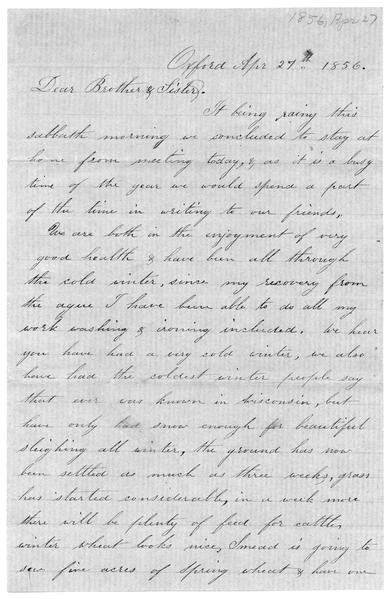 1856, Apr 27
Oxford Apr 27th 1856.
Dear Brother & Sister,
It being rainy this
sabbath morning we concluded to stay at
home from meeting today, & as it is a busy
time of the year we would spend a part
of the time in writing to our friends,
We are both in the enjoyment of very
good health & have been all through
the cold winter, since my recovery from
the ague I have been able to do all my
work washing & ironing included. We hear
you have had a very cold winter, we also
have had the coldest winter people say
that ever was known in Wisconsin, but
have only had snow enough for beautiful
sleighing all winter, the ground has now
been settled as much as three weeks, grass
has started considerable, in a week more
there will be plenty of feed for cattle,
winter wheat looks nice, Smead is going to
sow five acres of Spring wheat & have one